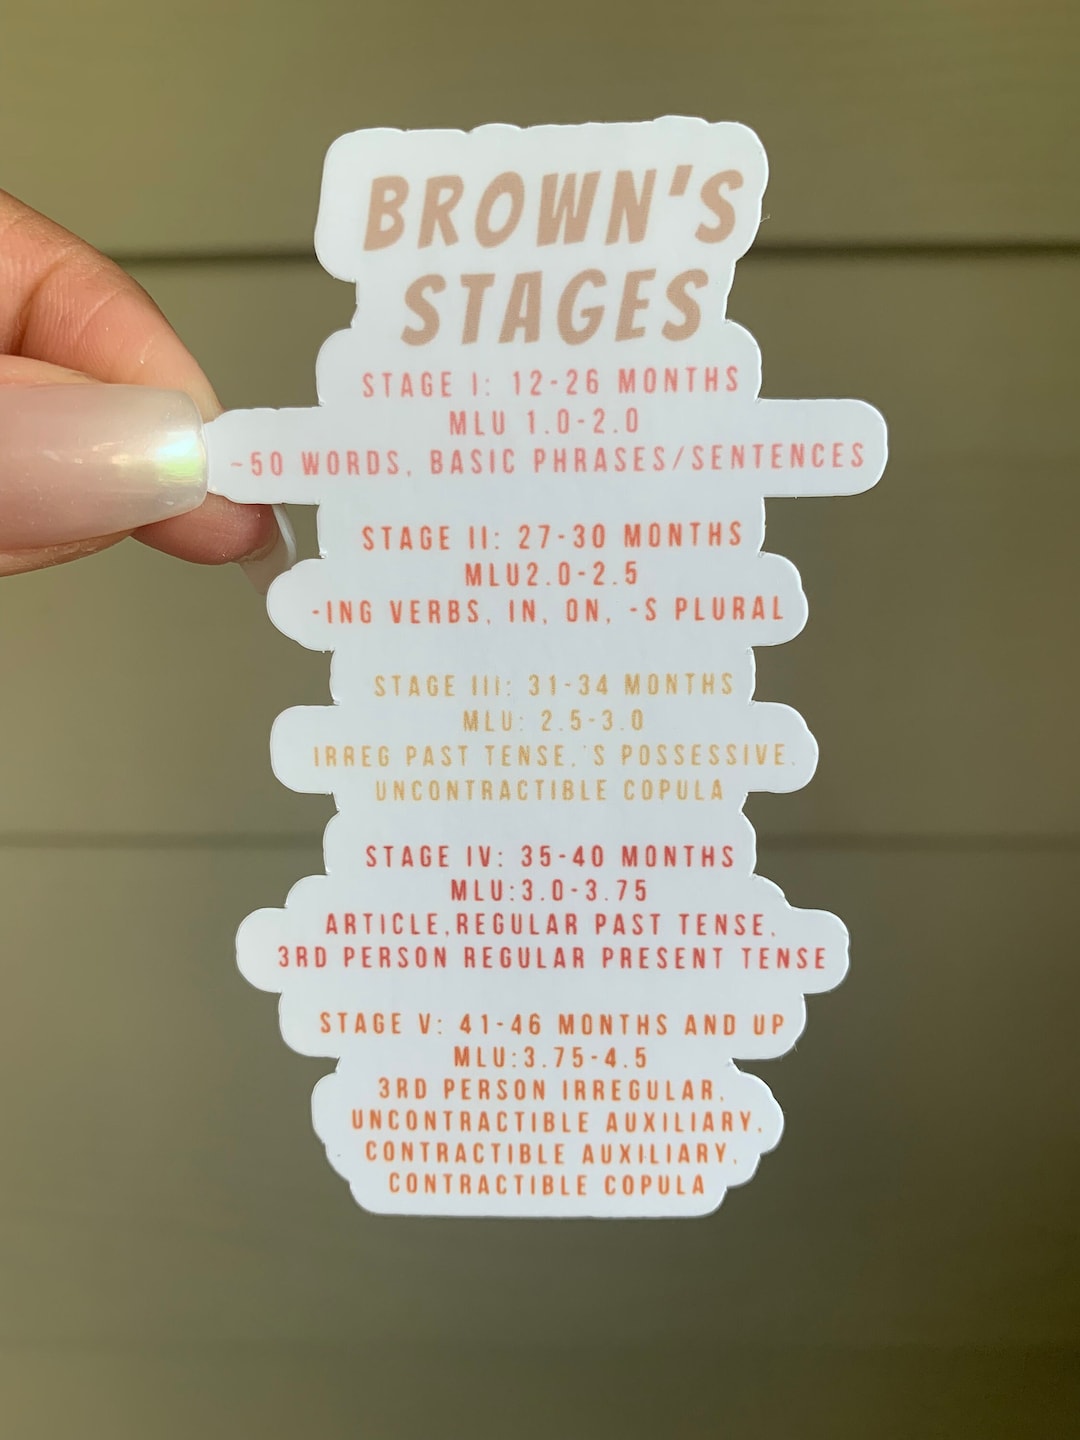 BROWN'S
STAGES
STAGE I: 12-26 MONTHS
MLU 1.0-2.0
~50 WORDS, BASIC PHRASES/SENTENCES
STAGE II: 27-30 MONTHS
MLU2.0-2.5
-ING VERBS, IN, ON, -S PLURAL
STAGE III: 31-34 MONTHS
MLU: 2.5-3.0
IRREG PAST TENSE,'S POSSESSIVE,
UNCONTRACTIBLE COPULA
STAGE IV: 35-40 MONTHS
MLU:3.0-3.75
ARTICLE,REGULAR PAST TENSE,
3RD PERSON REGULAR PRESENT TENSE
STAGE V: 41-46 MONTHS AND UP
MLU:3.75-4.5
3RD PERSON IRREGULAR,
UNCONTRACTIBLE AUXILIARY,
CONTRACTIBLE AUXILIARY,
CONTRACTIBLE COPULA